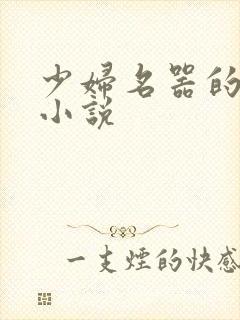 少婦名器的
小說
一支煙的快感